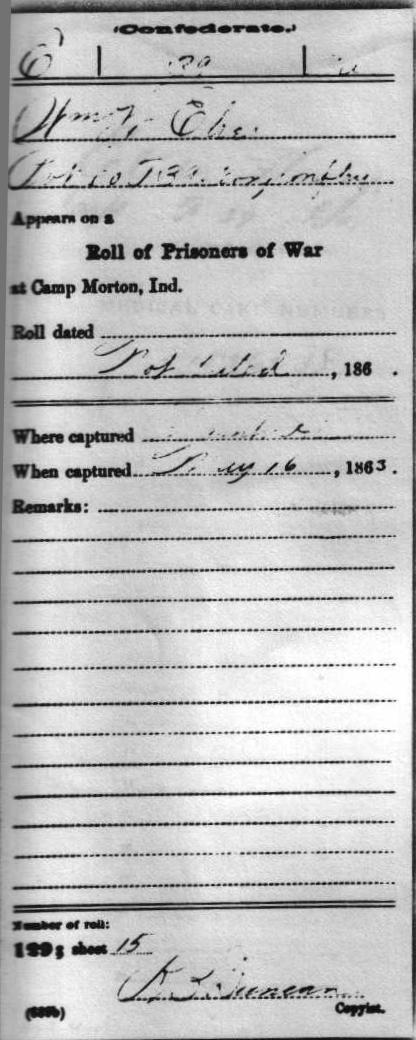 (Confederate.)
E | 29 |
Wm
Appears on a
Roll of Prisoners of War
at Camp Morton, Ind.
Roll dated
Not dated, 186 .
Where captured
When captured May 16, 1863.
Remarks:
Number of roll:
129; sheet 15
Duncan
Copyist.
(639b)